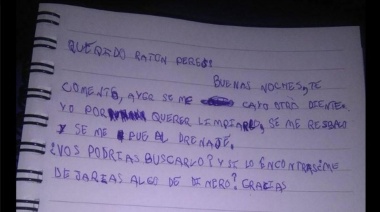 QUERIDO RATON PERES:
BUENAS NOCHES, TE
COMENTO, AYER SE ME CAYO OTRO DIENTE.
YO POR QUERER LEMPIARLO, SE ME RESBALO
Y SE ME FUE AL DRENAJE.
¿VOS PODRIAS BUSCARLO? Y SI LO ENCONTRAS ¿ME
DEJARIAS ALGO DE DINERO? GRACIAS